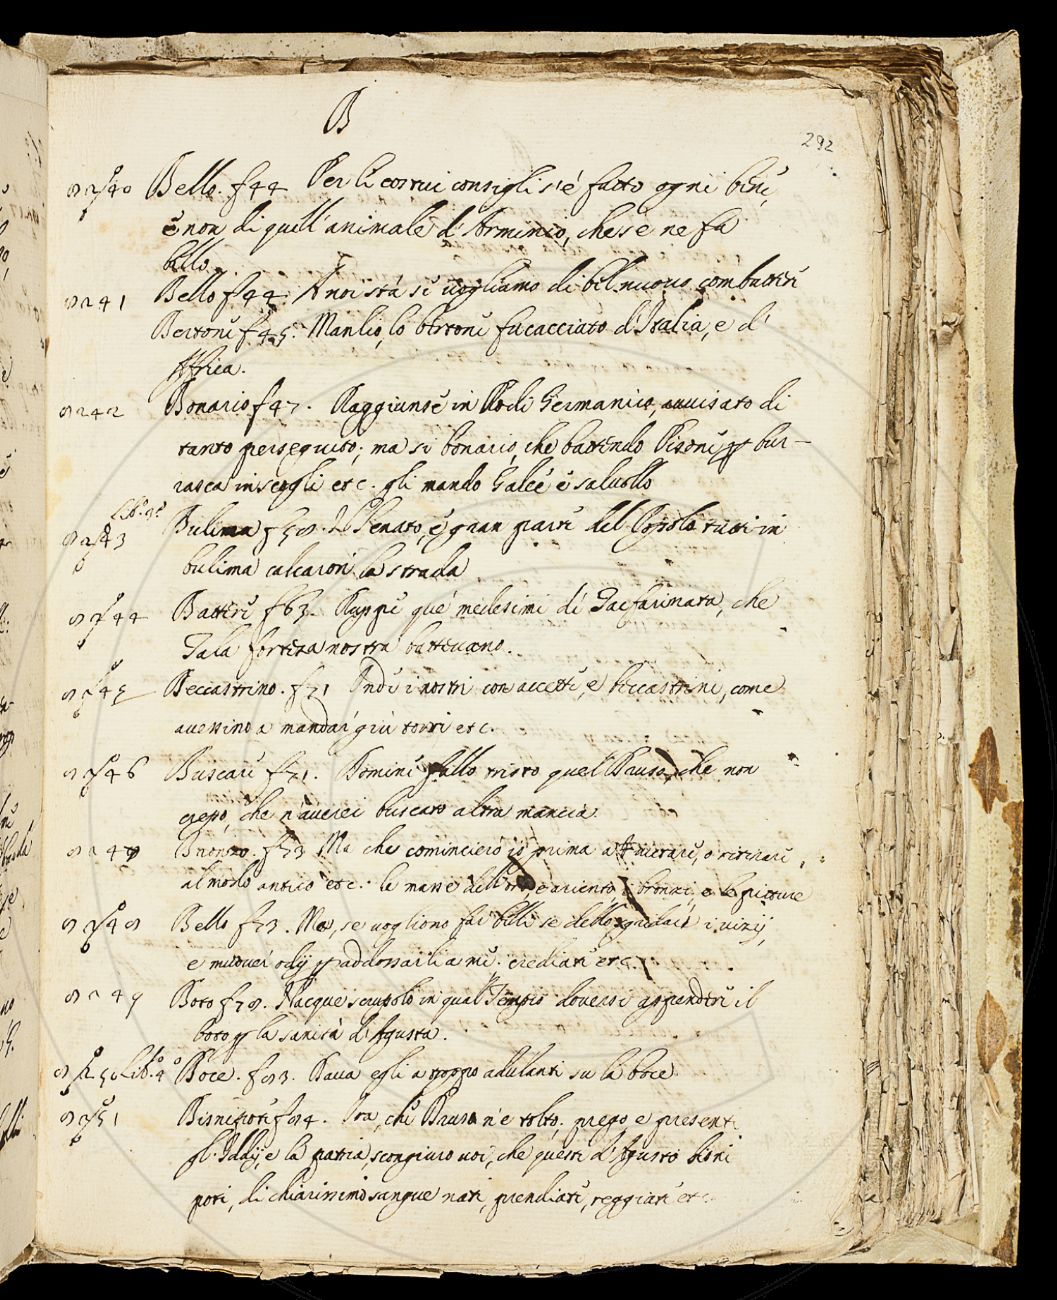 B
292
Bello. f 44 Per li costui consigli s'é fatto ogni bene,
e non di quell'animale d'Arminio, che se ne fa
bello.
241 Bello f 44. A noi stá se vogliamo di bel nuovo combattere
Bertone f 45. Manlio, lo bertone fu cacciato d'Italia, e d'
Affrica.
242 Bonario f 47. Raggiunse in Rodi Germanico, avvisato di
tanto perseguito; ma sí bonario, che battendo Pisone per bur-
rasca in scogli etc. gli mandó Galée e salvollo
Lib.
43 Bulima f 58. Il Senato, e gran parte del Popolo tutti in
bulima calcaron la strada
44 Battere f 63. Ruppe que' medesimi di Tacfarinata, che
Tala fortezza nostra battevano.
45 Beccastrino. f 71 Indi i nostri con accette, e beccastrini, come
avessino a mandar giú torri etc.
46 Buscare f 71. Domine fallo tristo quel Druso, che non
crepó, che n'averei buscato altra mancia.
Bronzo. f 73 Ma che comincieró io prima a stuierare, o ritirare,
al modo antico etc. le masse dell'oro e ariento i bronzi, e le pitture
48 Bello f 73. Ma, se vogliono far belli se dello sgridare i vizij,
e muover odij per addossarli a me. crediate etc.
49 Boto f 78. Nacque scrupolo in qual Tempio doversi appendere il
boto per la sanitá d'Agusta.
250 Lib. 4 Boce. f 83. Dava egli a troppo adulanti su la boce
51 Bisnipote f 84. Ora, che Druso n'e tolto. prego e presenti
gl'Iddij, e la patria, scongiuro voi, che questi d'Agusto bisni
poti, di chiarissimo sangue nati, prendiate, reggiate etc.